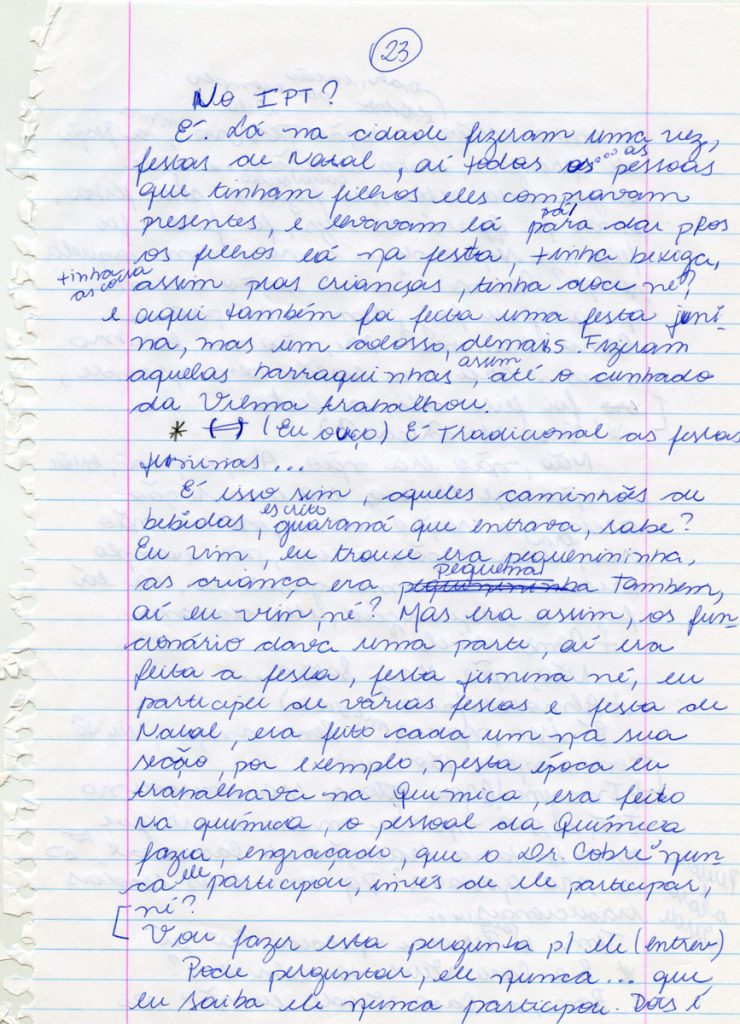 23
No IPT?
É. Lá na cidade fizeram uma vez,
festas de Natal, aí todas as pessoas
que tinham filhos eles compravam
presentes, e levavam lá para dar pros
os filhos lá na festa, tinha bexiga,
tinha
as coisa
assim pras crianças, tinha doce né?
e aqui também foi feita uma festa juni-
na, mas um colosso, demais. Fizeram
aquelas barraquinhas assim, até o cunhado
da Vilma trabalhou.
* (Eu ouço) É Tradicional as festas
juninas...
É isso sim, aqueles caminhões de
bebidas, escrito guaraná que entrava, sabe?
Eu vim, eu trouxe era pequenininha,
as criança era pequena também,
aí eu vim, né? Mas era assim, os fun-
cionário dava uma parte, aí era
feita a festa, festa junina né, eu
participei de várias festas e festa de
Natal, era feito cada um na sua
secão, por exemplo, nesta época eu
trabalhava na Química, era feito
na química, o pessoal da Química
fazia, engraçado, que o Dr. Cobre nun-
ca ele participou, invés de ele participar,
né?
[ Vou fazer esta pergunta p/ ele (entrev)
Pode perguntar, ele nunca... que
eu saiba ele nunca participou. Dos é